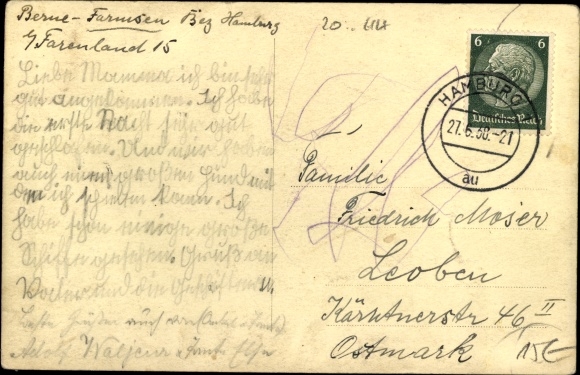 Berne-Farmsen Bez Hamburg
i/Farenland 15
Liebe Mamma ich bin sehr
gut angekommen. Ich habe
die erste Nacht sehr gut
geschlafen. Und wir haben
auch einen großen Hund mit
den ich spielen kann. Ich
habe schon einige große
Schiffe gesehen. Gruß an
Vater und die
Beste Grüße auch von Onkel
Adolf
20
6 6
Deutsches Reich
HAMBURG
27.6.38.-21
au
Familie
Friedrich Moser
Leoben
Kärntnerstr 46 II
Ostmark
15€